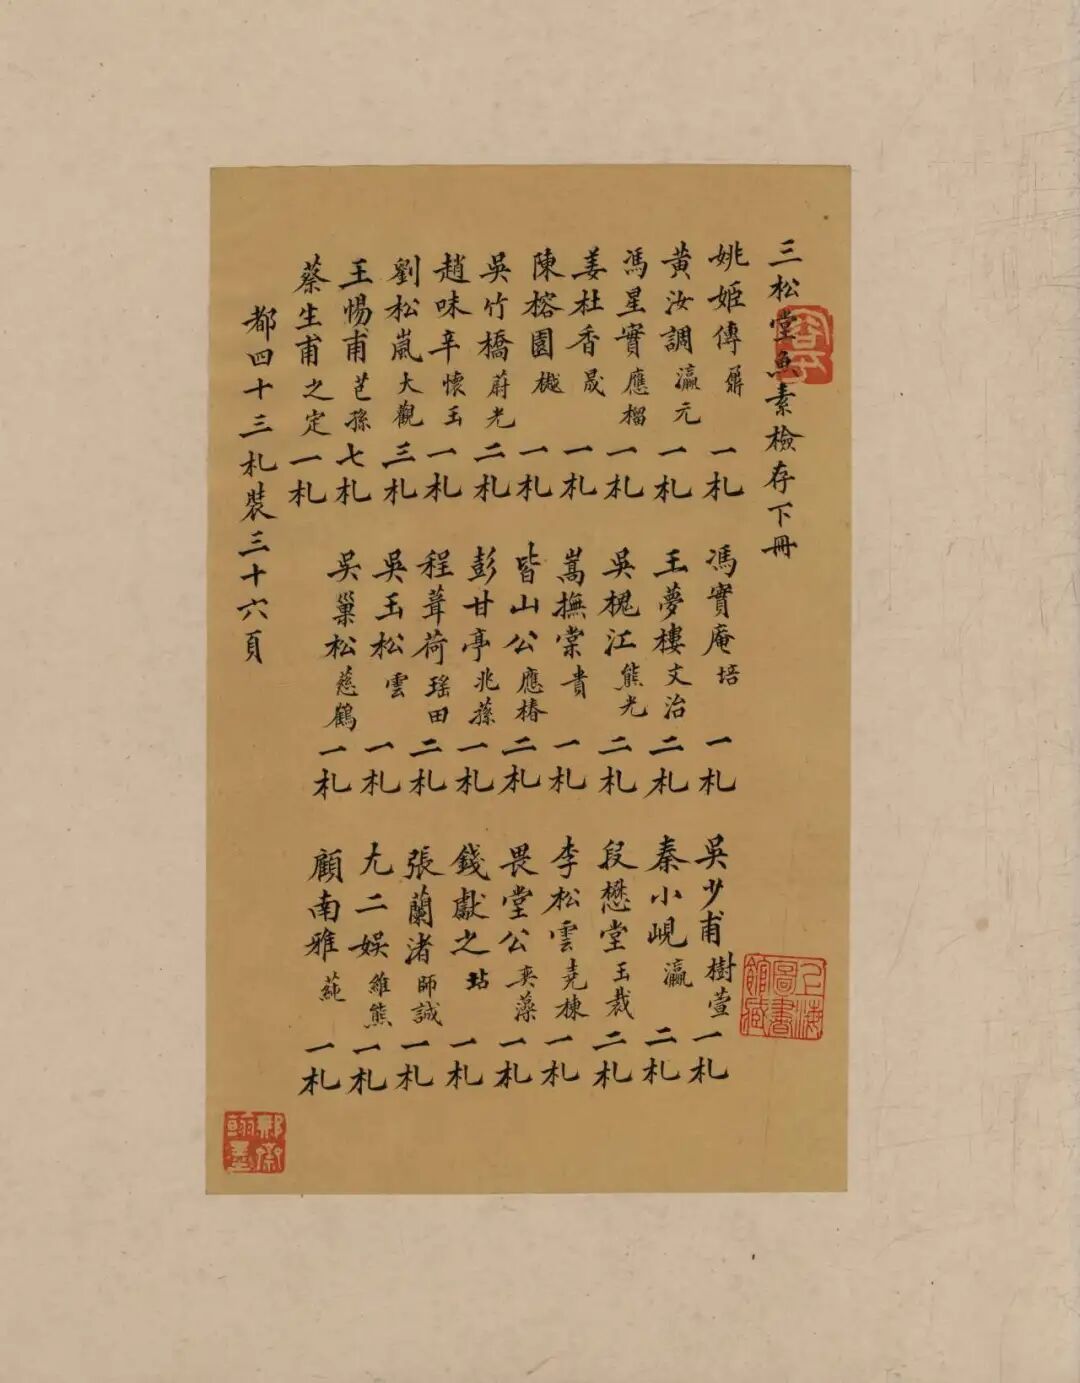 三松堂魚素檢存下冊
姚姬傳 鼐 一札 馮實庵 培 一札 吳少甫 樹萱 一札
黃汝調 瀛元 一札 王夢樓 文治 二札 秦小峴 瀛 二札
馮星實 應榴 一札 吳槐江 熊光 二札 段懋堂 玉裁 二札
姜杜香 晟 一札 嵩撫棠 貴 一札 李松雲 堯棟 一札
陳榕園 樾 一札 皆山公 應椿 二札 畏堂公 奕藻 一札
吳竹橋 蔚光 二札 彭甘亭 兆蓀 一札 錢獻之 坫 一札
趙味辛 懷玉 一札 程葺荷 瑤田 二札 張蘭渚 師誠 一札
劉松嵐 大觀 三札 吳玉松 雲 一札 尤二娛 維熊 一札
王惕甫 芑孫 七札 吳巢松 慈鶴 一札 顧南雅 蒓 一札
蔡生甫 之定 一札
都四十三札裝三十六頁
上海圖書館藏